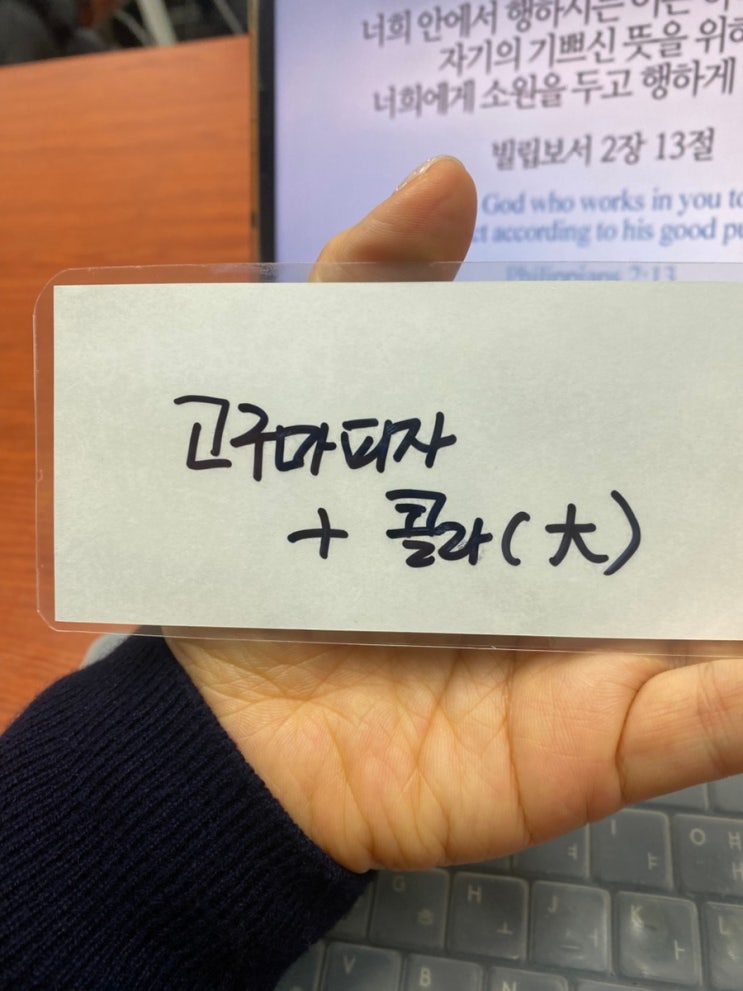 너희 안에서 행하시는 이는
자기의 기쁘신 뜻을 위하
너희에게 소원을 두고 행하게
빌립보서 2장 13절
God who works in you to
ct according to his good pu
Philippians 2:13
고구마피자
+ 콜라(大)
G
H
J
K
L
V
B
N